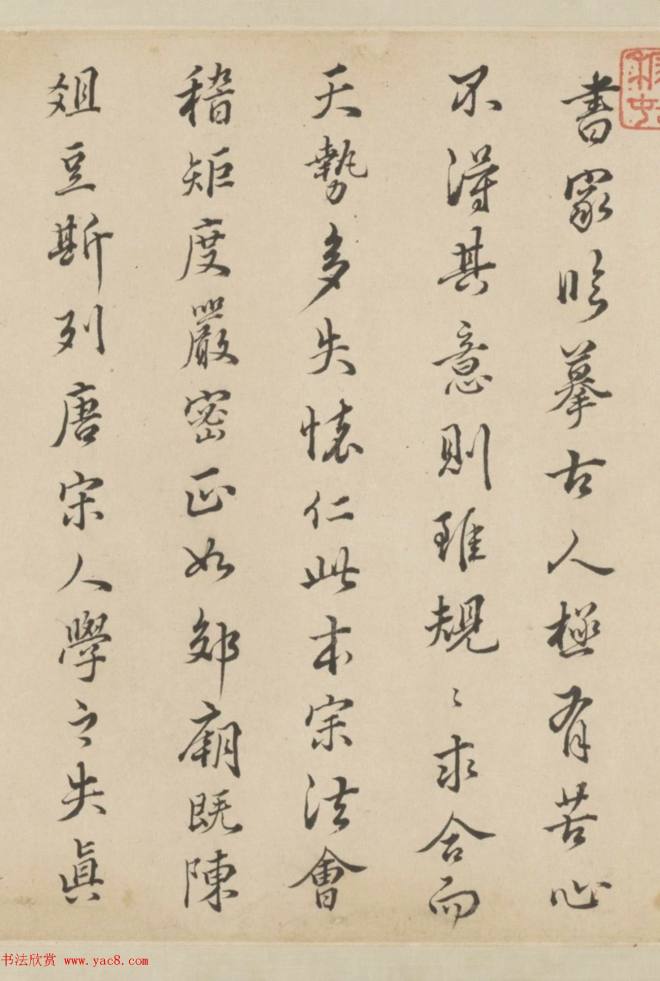 書家臨摹古人極有苦心
不得其意則雖規〻求合而
天勢多失懷仁此本宗法會
稽矩度嚴密正如郊廟既陳
俎豆斯列唐宋人學之失真
书法欣赏 www.yac8.com